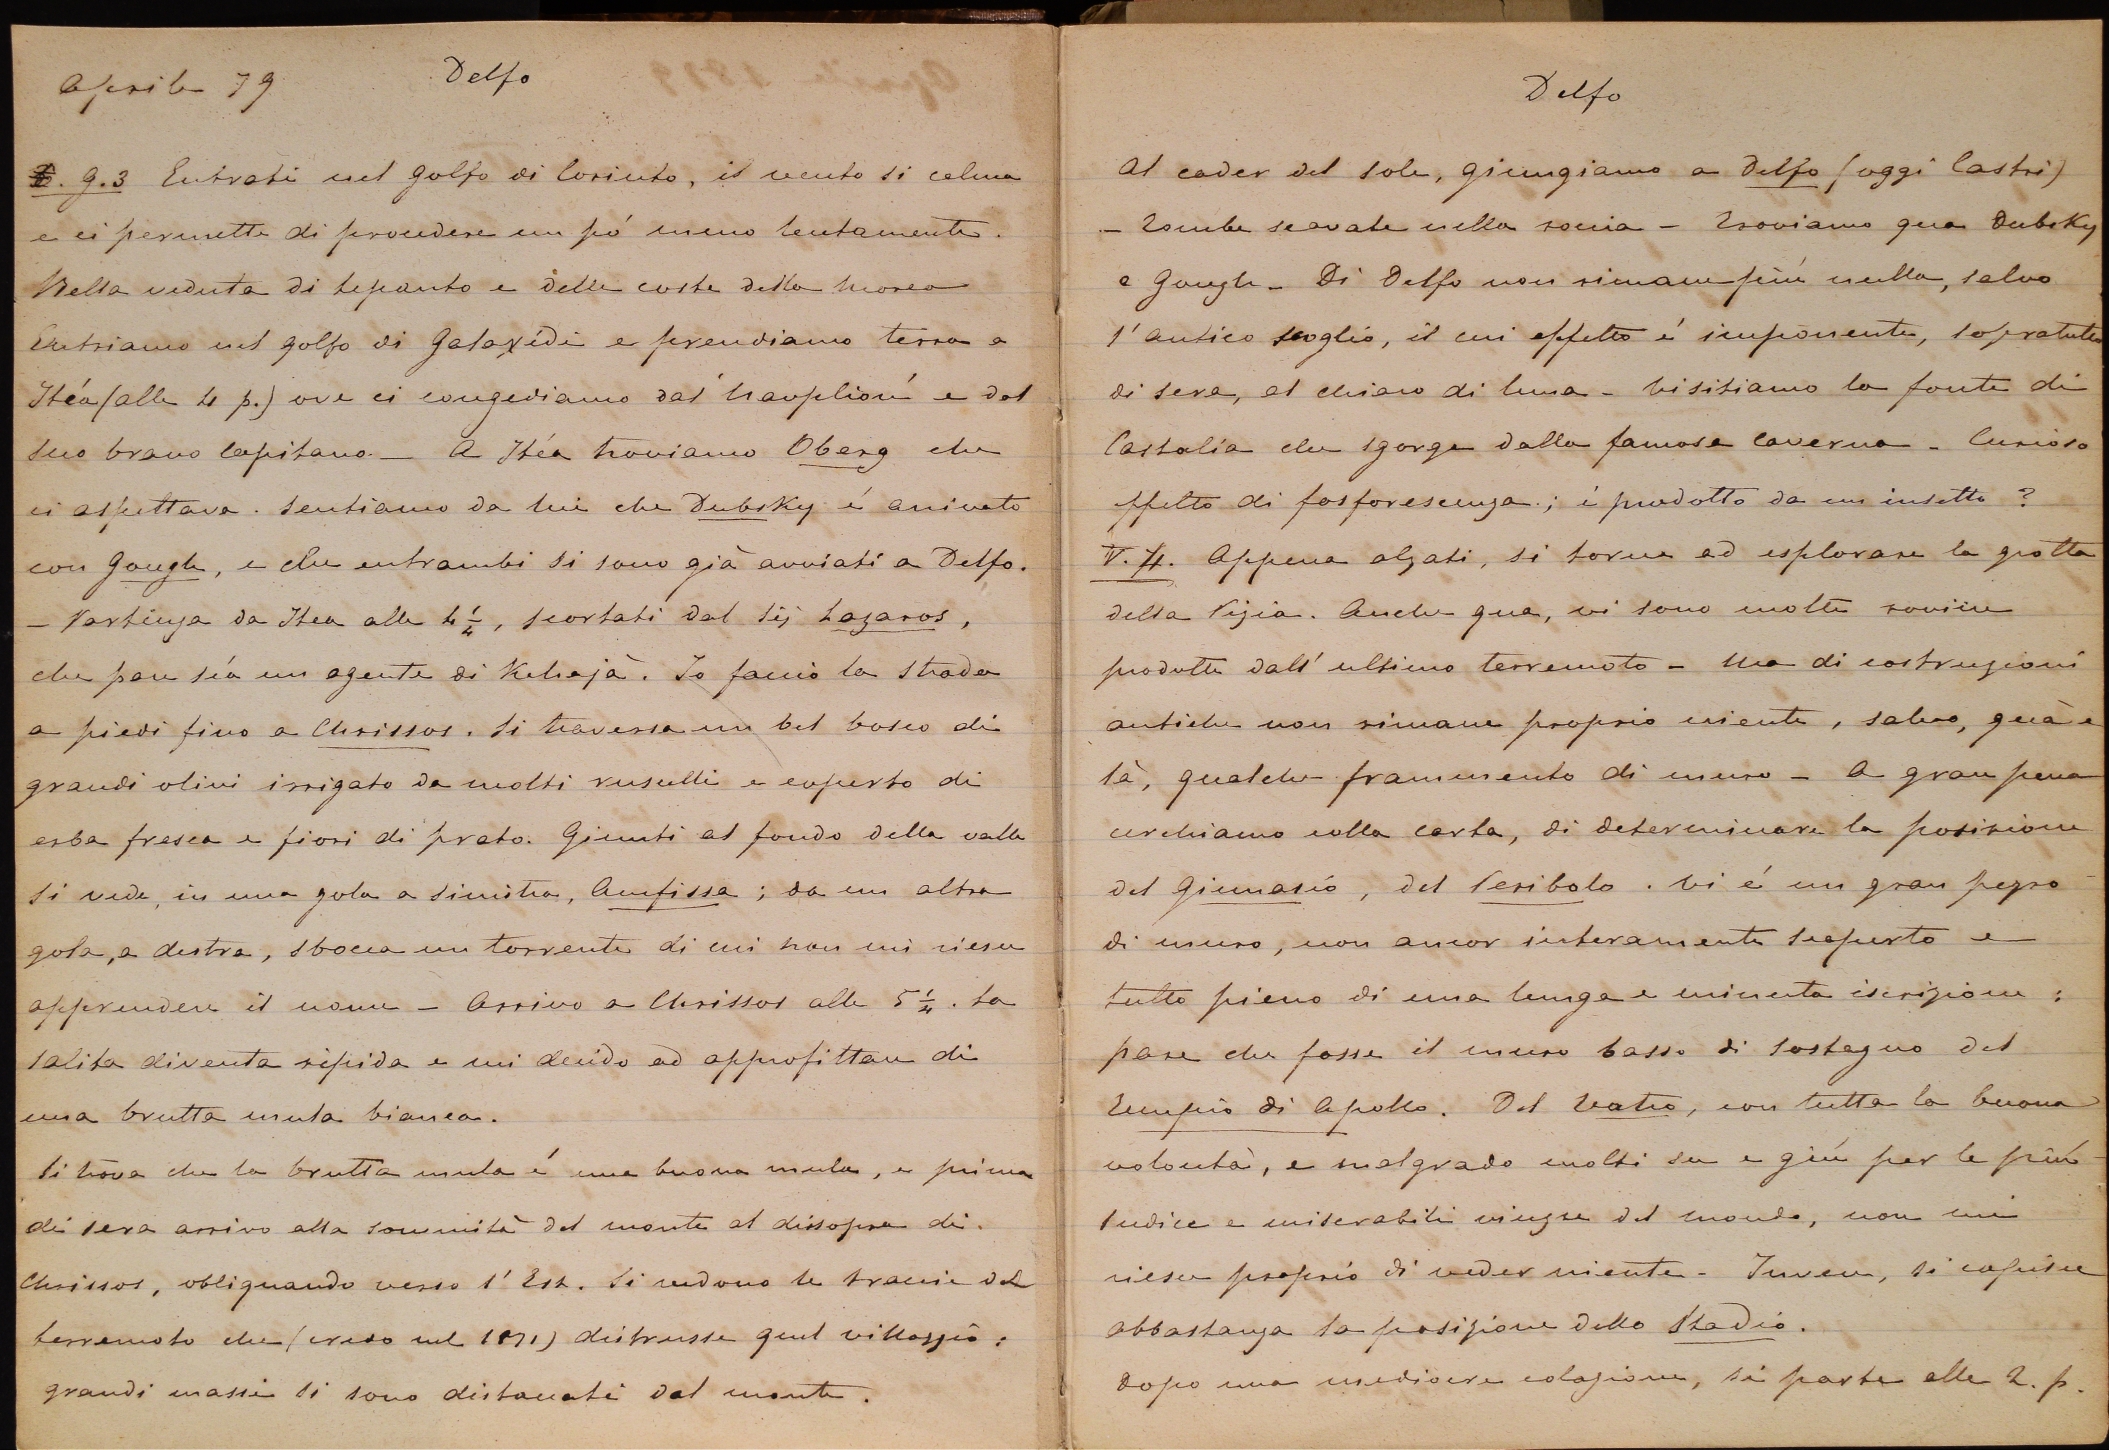 Aprile 79
Delfo
G. 3 Entrati nel golfo di Corinto, il vento si calma
e ci permette di procedere un pó meno lentamente.
Bella veduta di Lepanto e delle coste della Morea
Entriamo nel golfo di Galaxídi e prendiamo terra a
Itéa (alle 4 p.) ove ci congediamo dal Nauplion e dal
suo bravo Capitano — A Itéa troviamo Oberg che
ci aspettava. Sentiamo da lui che Dubsky é arrivato
con Gough, e che entrambi si sono già avviati a Delfo.
— Partenza da Itea alle 4 ¼, scortati dal Sig Lazaros,
che pare sia un agente di Kehajà. Io faccio la strada
a piedi fino a Chrissos. Si traversa un bel bosco di
grandi olivi irrigato da molti ruscelli e coperto di
erba fresca e fiori di prato. Giunti al fondo della valle
si vede, in una gola a sinistra, Amfissa; da un altra
gola, a destra, sbocca un torrente di cui non mi riesce
apprendere il nome — Arrivo a Chrissos alle 5 ¼. La
salita diventa ripida e mi decido ad approfittare di
una brutta mula bianca.
Si trova che la brutta mula é una buona mula, e prima
di sera arrivo alla sommità del monte al dissopra di
Chrissos, obliquando verso l'Est. Si vedono le traccie del
terremoto che (credo nel 1871) distrusse quel villaggio:
grandi massi si sono distaccati dal monte.
Delfo
Al cader del sole, giungiamo a Delfo (oggi Castri)
— Tombe scavate nella roccia — Troviamo qua Dubsky
e Gough — Di Delfo non rimane piú nulla, salvo
l'antico scoglio, il cui effetto é imponente, sopratutto
di sera, al chiaro di luna — Visitiamo la fonte di
Castalia che sgorga dalla famosa caverna — Curioso
effetto di fosforescenza; é prodotto da un insetto?
V. 4. Appena alzati, si torna ad esplorare la grotta
della Pizia. Anche qua, vi sono molte rovine
prodotte dall'ultimo terremoto — Ma di costruzioni
antiche non rimane proprio niente, salvo, quà e
là, qualche frammento di muro — A gran pena
cerchiamo colla carta, di determinare la posizione
del Gimnasio, del Peribolo. Vi é un gran pezzo
di muro, non ancor interamente scoperto e
tutto pieno di una lunga e minuta iscrizione;
pare che fosse il muro basso di sostegno del
Tempio di Apollo. Del Teatro, con tutta la buona
volontà, e malgrado molti su e giú per le piú
sudice e miserabili vigne del mondo, non mi
riesce proprio di veder niente — Invece, si capisce
abbastanza la posizione dello Stadio.
Dopo una mediocre colazione, si parte alle 2. p.